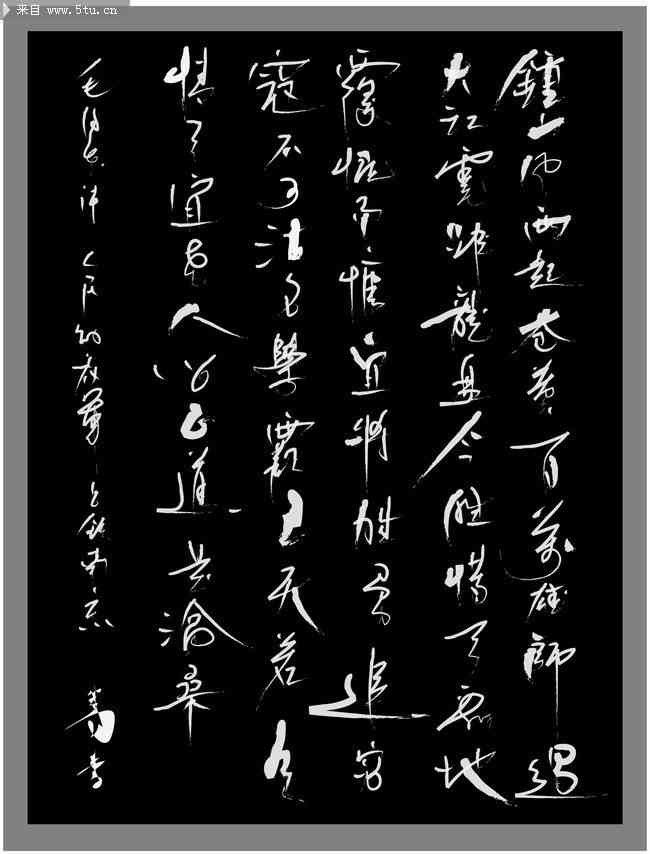 来自 www.5tu.cn
鍾山风雨起苍黄百萬雄師過
大江虎踞龍盘今胜惜天翻地
覆慨而慷宜将剩勇追穷
寇不可沽名學霸王天若有
情天宜老人间正道是滄桑
毛泽东诗 人民解放军占领南京
书